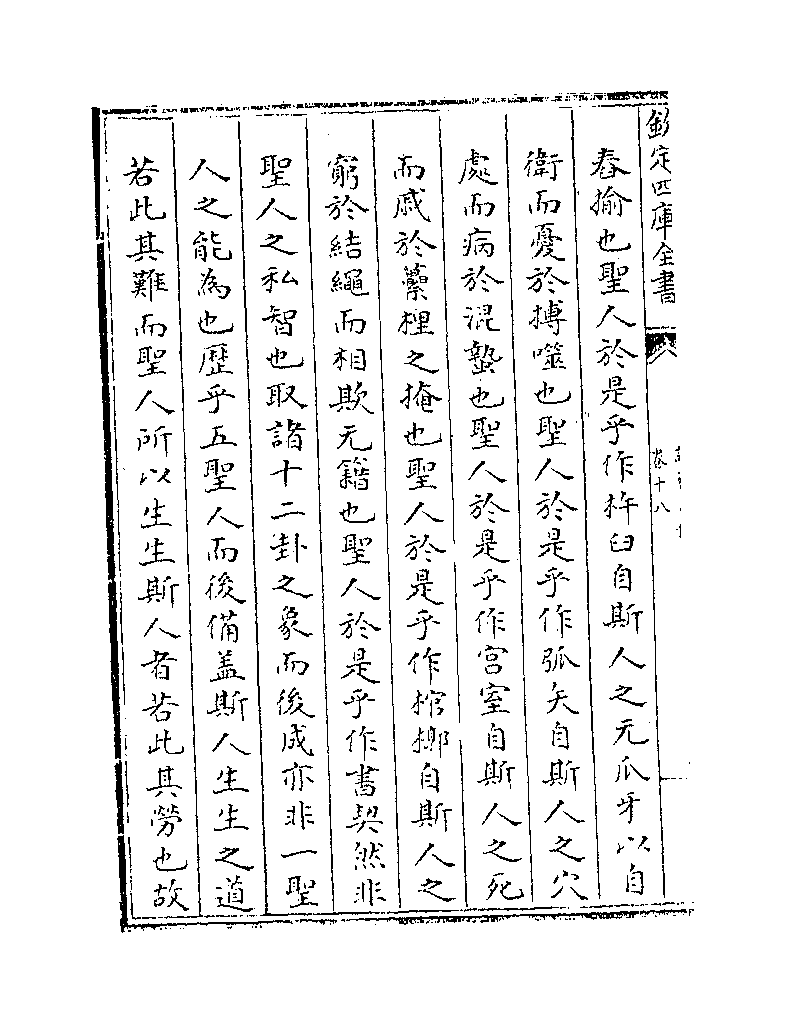 欽定四庫全書
卷十八
舂揄也聖人於是乎作杵臼自斯人之无爪牙以自
衛而憂於搏噬也聖人於是乎作弧矢自斯人之穴
處而病於混蟄也聖人於是乎作宮室自斯人之死
而戚於虆梩之掩也聖人於是乎作棺槨自斯人之
窮於結繩而相欺无籍也聖人於是乎作書契然非
聖人之私智也取諸十二卦之象而後成亦非一聖
人之能為也歴乎五聖人而後備盖斯人生生之道
若此其難而聖人所以生生斯人者若此其勞也故